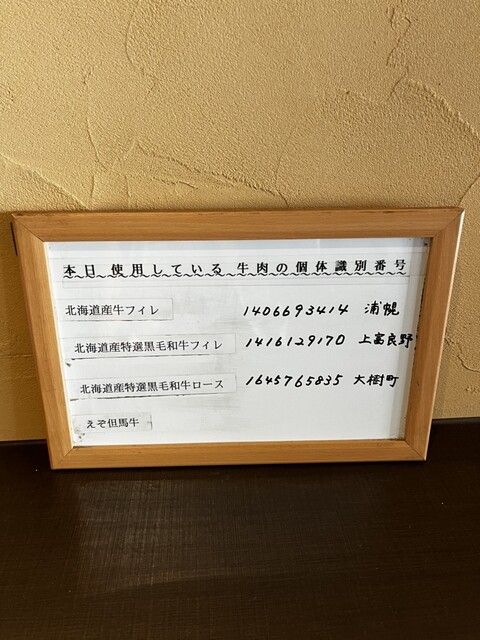 本日使用している牛肉の個体識別番号
北海道産牛フィレ 1406693414 浦幌
北海道産特選黒毛和牛フィレ 1416129170 上富良野
北海道産特選黒毛和牛ロース 1645765835 大樹町
えぞ但馬牛